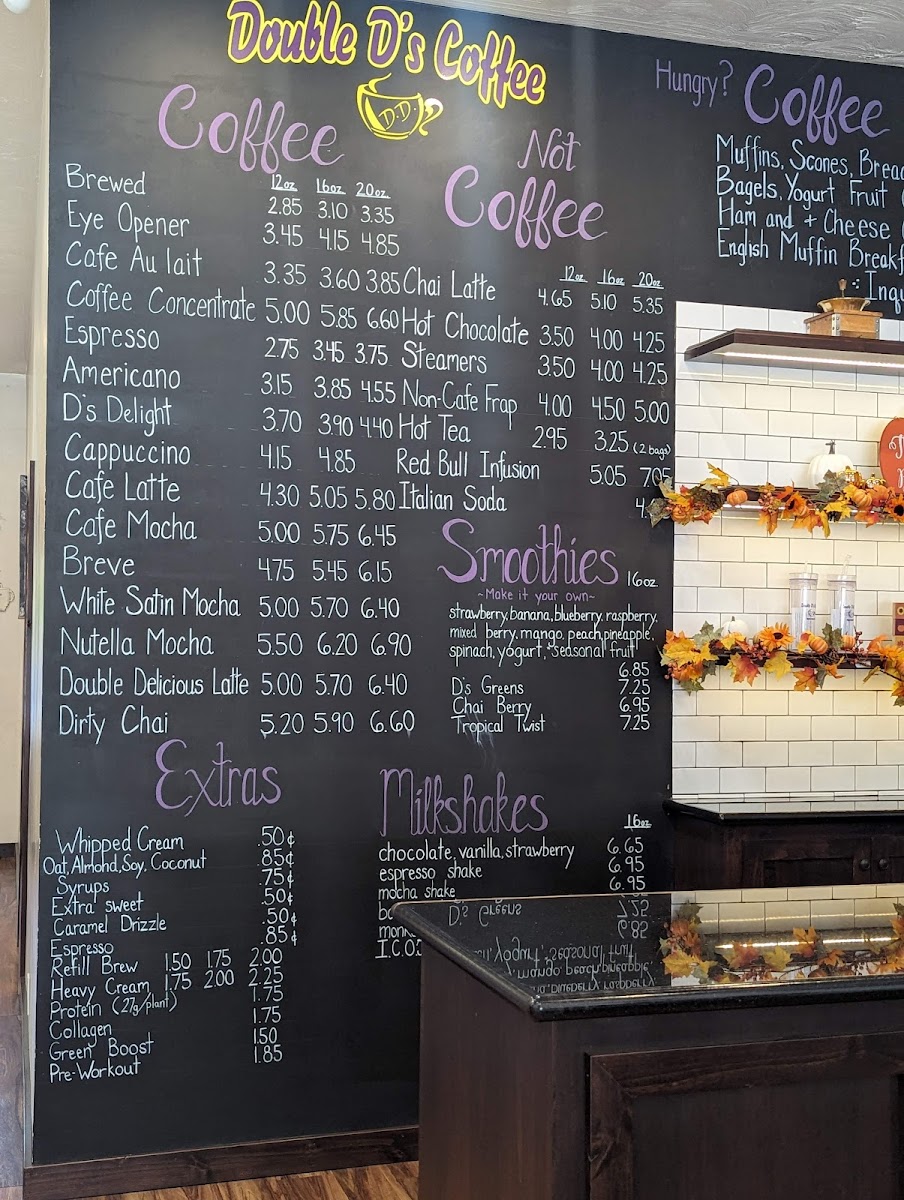 Double D's Coffee
D.D.
Coffee
12oz 16oz 20oz
Brewed 2.85 3.10 3.35
Eye Opener 3.45 4.15 4.85
Cafe Au lait 3.35 3.60 3.85
Coffee Concentrate 5.00 5.85 6.60
Espresso 2.75 3.45 3.75
Americano 3.15 3.85 4.55
D's Delight 3.70 3.90 4.40
Cappuccino 4.15 4.85
Cafe Latte 4.30 5.05 5.80
Cafe Mocha 5.00 5.75 6.45
Breve 4.75 5.45 6.15
White Satin Mocha 5.00 5.70 6.40
Nutella Mocha 5.50 6.20 6.90
Double Delicious Latte 5.00 5.70 6.40
Dirty Chai 5.20 5.90 6.60
Extras
Whipped Cream .50¢
Oat, Almond, Soy, Coconut .85¢
Syrups .75¢
Extra sweet .50¢
Caramel Drizzle .50¢
Espresso .85¢
Refill Brew 1.50 1.75 2.00
Heavy Cream 1.75 2.00 2.25
Protein (27g/plant) 1.75
Collagen 1.75
Green Boost 1.50
Pre-Workout 1.85
Not
Coffee
12oz 16oz 20oz
Chai Latte 4.65 5.10 5.35
Hot Chocolate 3.50 4.00 4.25
Steamers 3.50 4.00 4.25
Non-Cafe Frap 4.00 4.50 5.00
Hot Tea 2.95 3.25 (2 bags)
Red Bull Infusion 5.05 7.05
Italian Soda 4.
Smoothies 16oz
~Make it your own~
strawberry, banana, blueberry, raspberry,
mixed berry, mango, peach, pineapple,
spinach, yogurt, *seasonal fruit*
6.85
D's Greens 7.25
Chai Berry 6.95
Tropical Twist 7.25
Milkshakes
16oz
chocolate, vanilla, strawberry 6.65
espresso shake 6.95
mocha shake 6.95
I.C.O.
Hungry? Coffee
Muffins, Scones, Brea
Bagels, Yogurt Fruit
Ham and + Cheese
English Muffin Breakf
Inqu